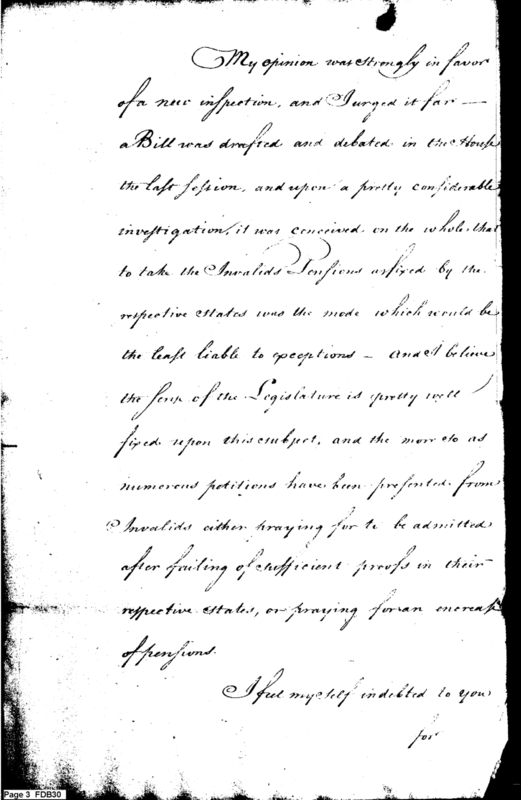 My opinion was strongly in favor
of a new inspection, and I urged it far —
a Bill was drafted and debated in the House
the last session, and upon a pretty considerable
investigation, it was conceived on the whole that
to take the Invalids Pensions as fixed by the
respective states was the mode which would be
the least liable to exceptions – and I believe
the sense of the Legislature is pretty well
fixed upon this subject, and the more so as
numerous petitions have been presented from
Invalids either praying for to be admitted
after failing of sufficient proofs in their
respective states, or praying for an encrease
of pensions.
I feel myself indebted to you
for
Page 3 FDB30